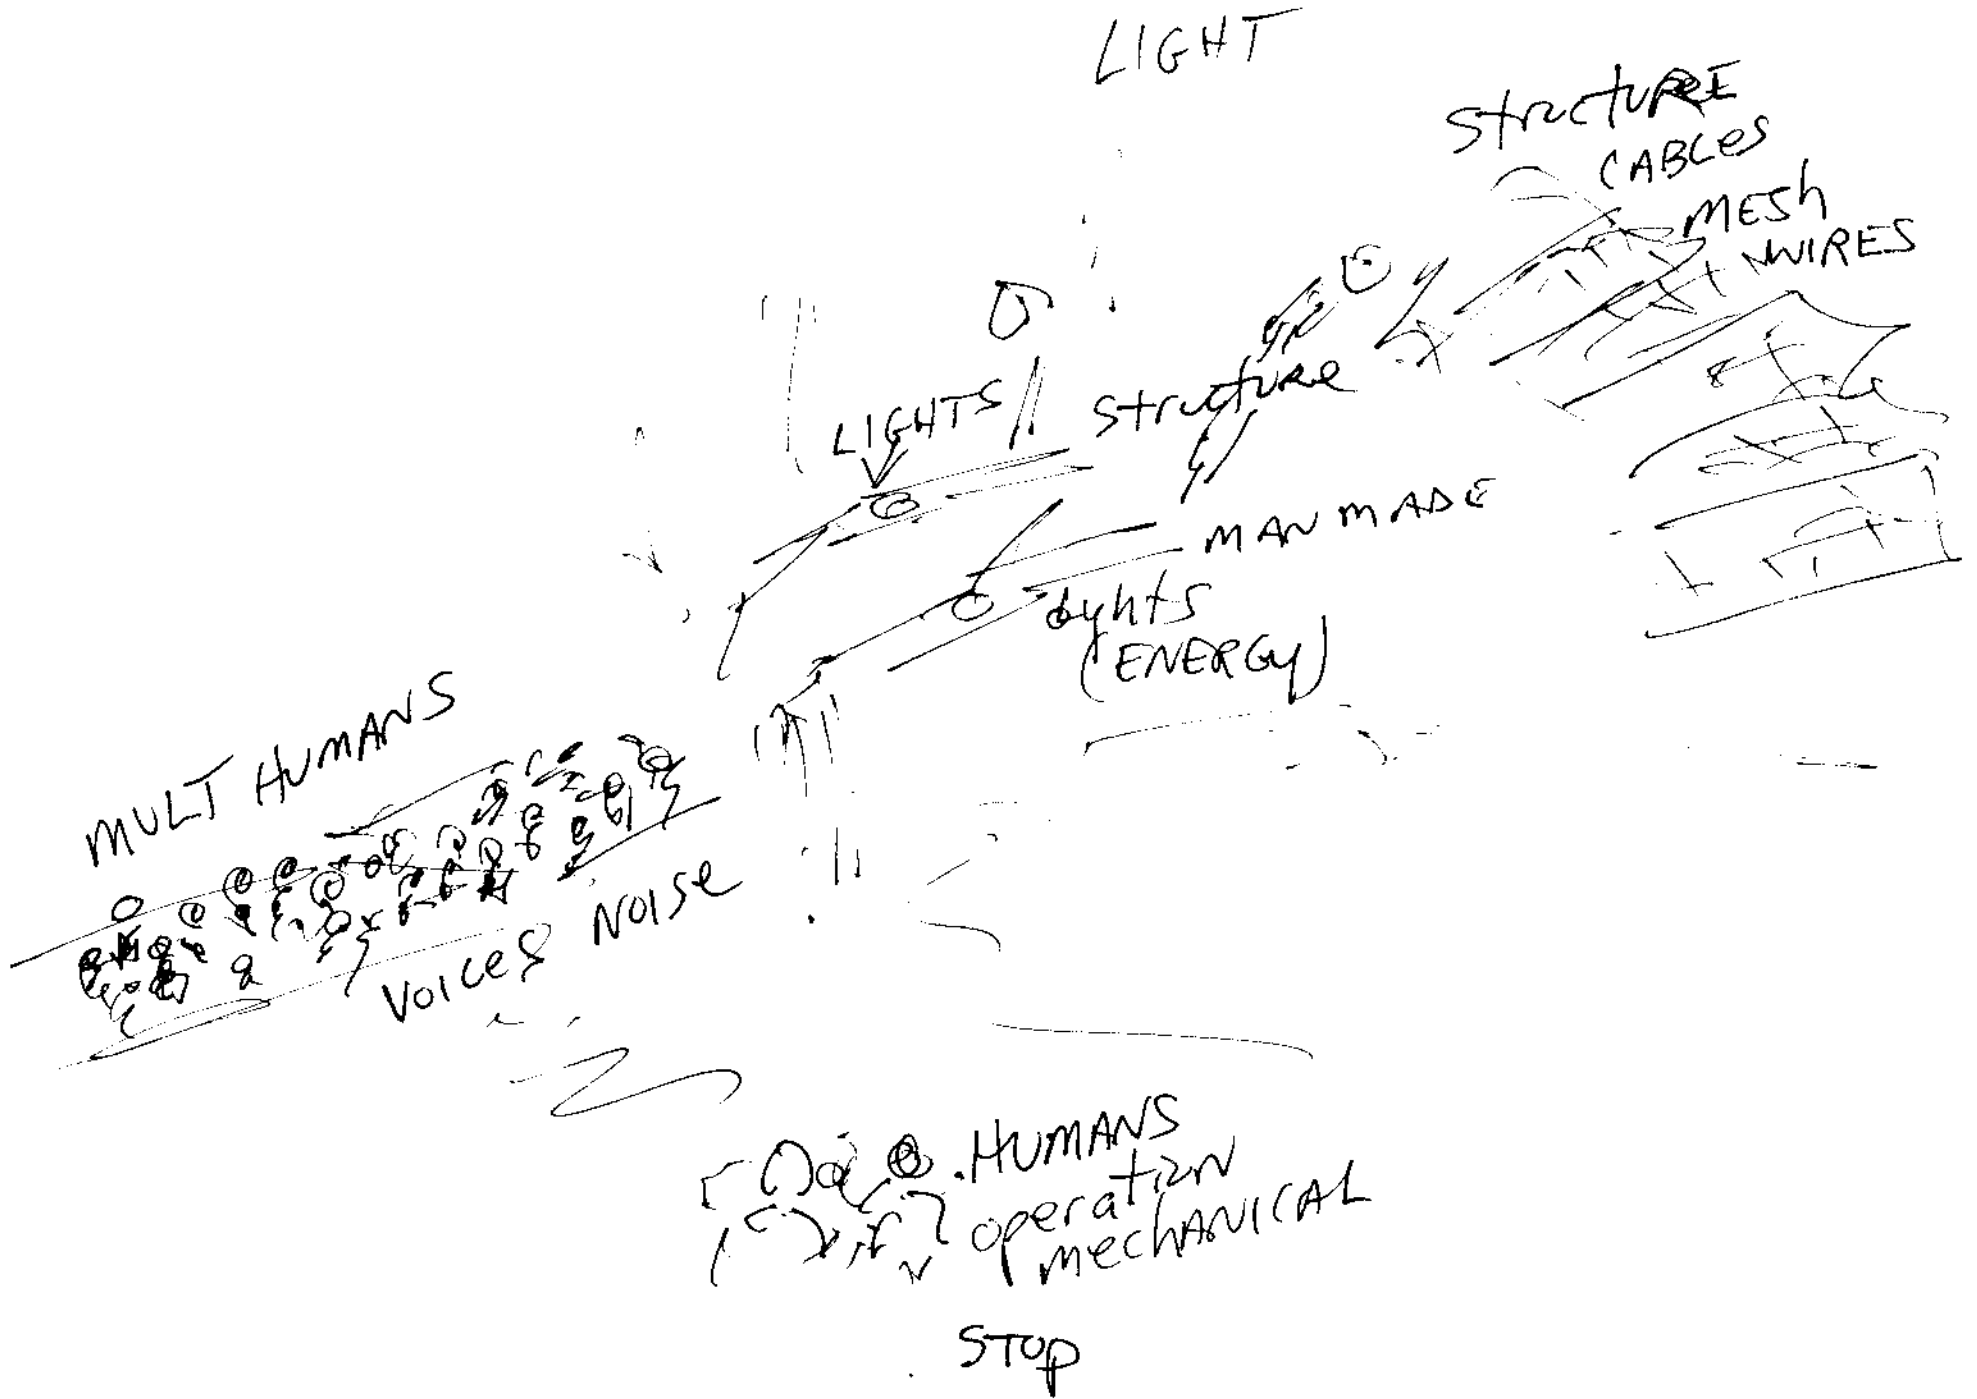 LIGHT
StructuRE
CABLes
MESh
WIRES
LIGHTS
Structure
MANMADE
Lights
(ENERGY)
MULT HUMANS
VOICES NOISe
HUMANS
operation
mecHANICAL
STOP